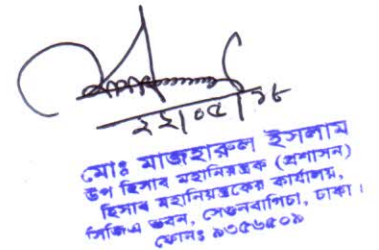 ২২/০৫/১৮
মোঃ মাজহারুল ইসলাম
উপ হিসাব মহানিয়ন্ত্রক (প্রশাসন)
হিসাব মহানিয়ন্ত্রকের কার্যালয়,
সিজিএ ভবন, সেগুনবাগিচা, ঢাকা।
ফোনঃ ৯৩৫৬৫০৯